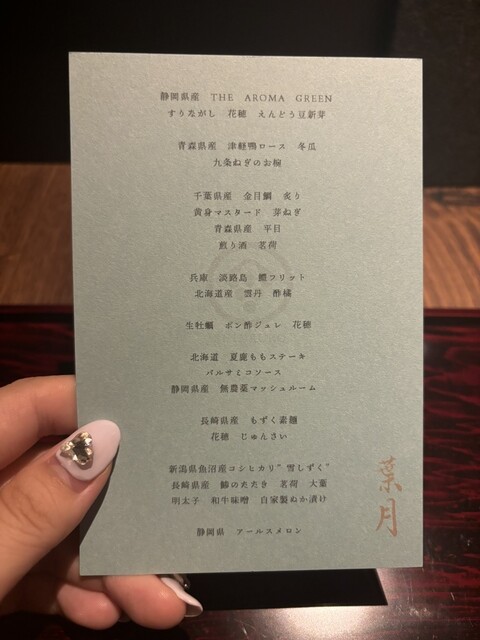 静岡県産　THE　AROMA　GREEN
すりながし　花穂　えんどう豆新芽
青森県産　津軽鴨ロース　冬瓜
九条ねぎのお椀
千葉県産　金目鯛　炙り
黄身マスタード　芽ねぎ
青森県産　平目
煎り酒　茗荷
兵庫　淡路島　鱧フリット
北海道産　雲丹　酢橘
生牡蠣　ポン酢ジュレ　花穂
北海道　夏鹿ももステーキ
バルサミコソース
静岡県産　無農薬マッシュルーム
長崎県産　もずく素麺
花穂　じゅんさい
新潟県魚沼産コシヒカリ"雪しずく"
長崎県産　鰺のたたき　茗荷　大葉
明太子　和牛味噌　自家製ぬか漬け
静岡県　アールスメロン
葉月